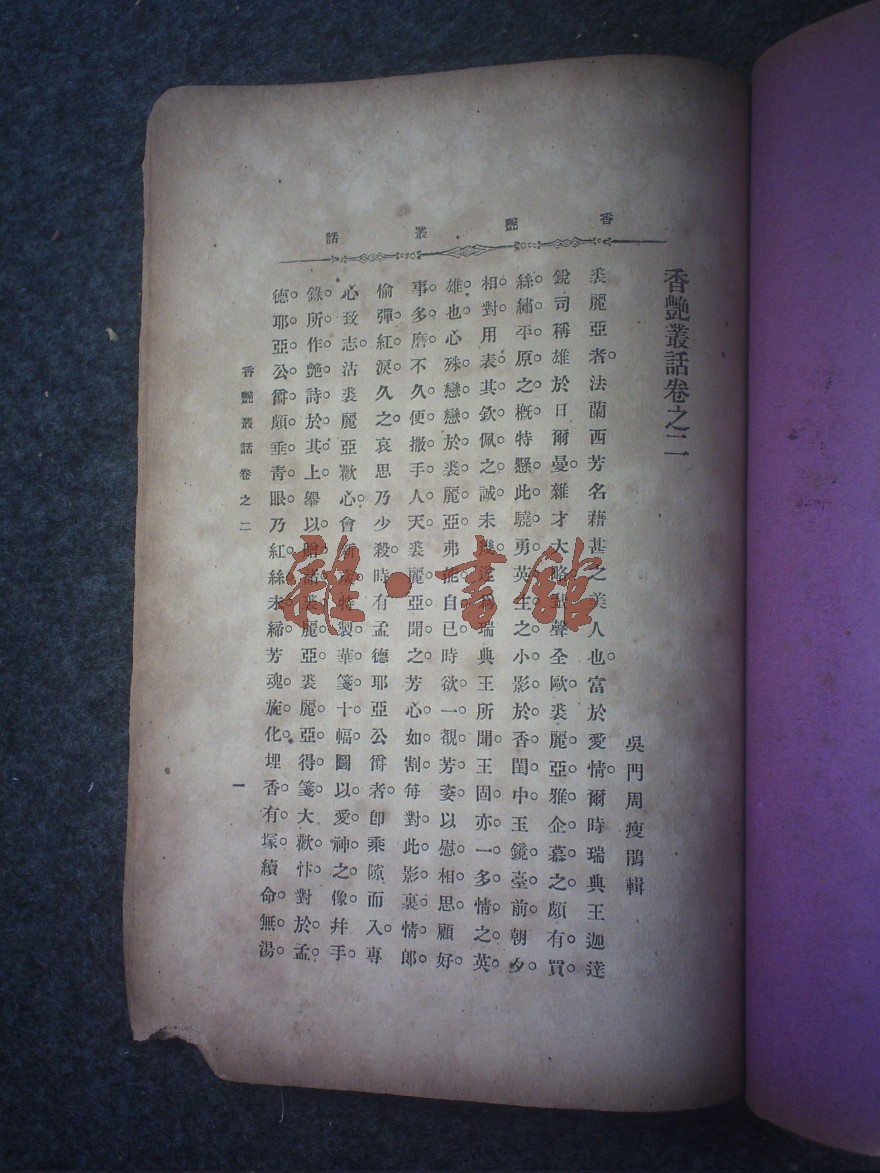 香艷叢話
香艷叢話卷之二
吳門周瘦鵑輯
裘麗亞者法蘭西芳名藉甚之美人也富於愛情爾時瑞典王迦達
銳司稱雄於日爾曼雜才大略聲全歐裘麗亞雅企慕之頗有買
絲繡平原之概特懸此驍勇英主之小影於香閨中玉鏡臺前朝夕
相對用表其欽佩之誠未幾瑞典王所聞王固亦一多情之英
雄也心殊戀戀於裘麗亞弗能自已時欲一覩芳姿以慰相思顧好
事多磨不久便撒手人天裘麗亞聞之芳心如割每對此影裏情郎
偷彈紅淚久之哀思乃少殺時有孟德耶亞公爵者卽乘隙而入專
心致志沽裘麗亞歡心會新歲特製華箋十幅圖以愛神之像幷手
錄所作艷詩於其上舉以貽諸裘麗亞裘麗亞得箋大歡忭對於孟
德耶亞公爵頗垂靑眼乃紅絲未締芳魂旋化埋香有塚續命無湯
香艷叢話卷之二
一
雜·書館